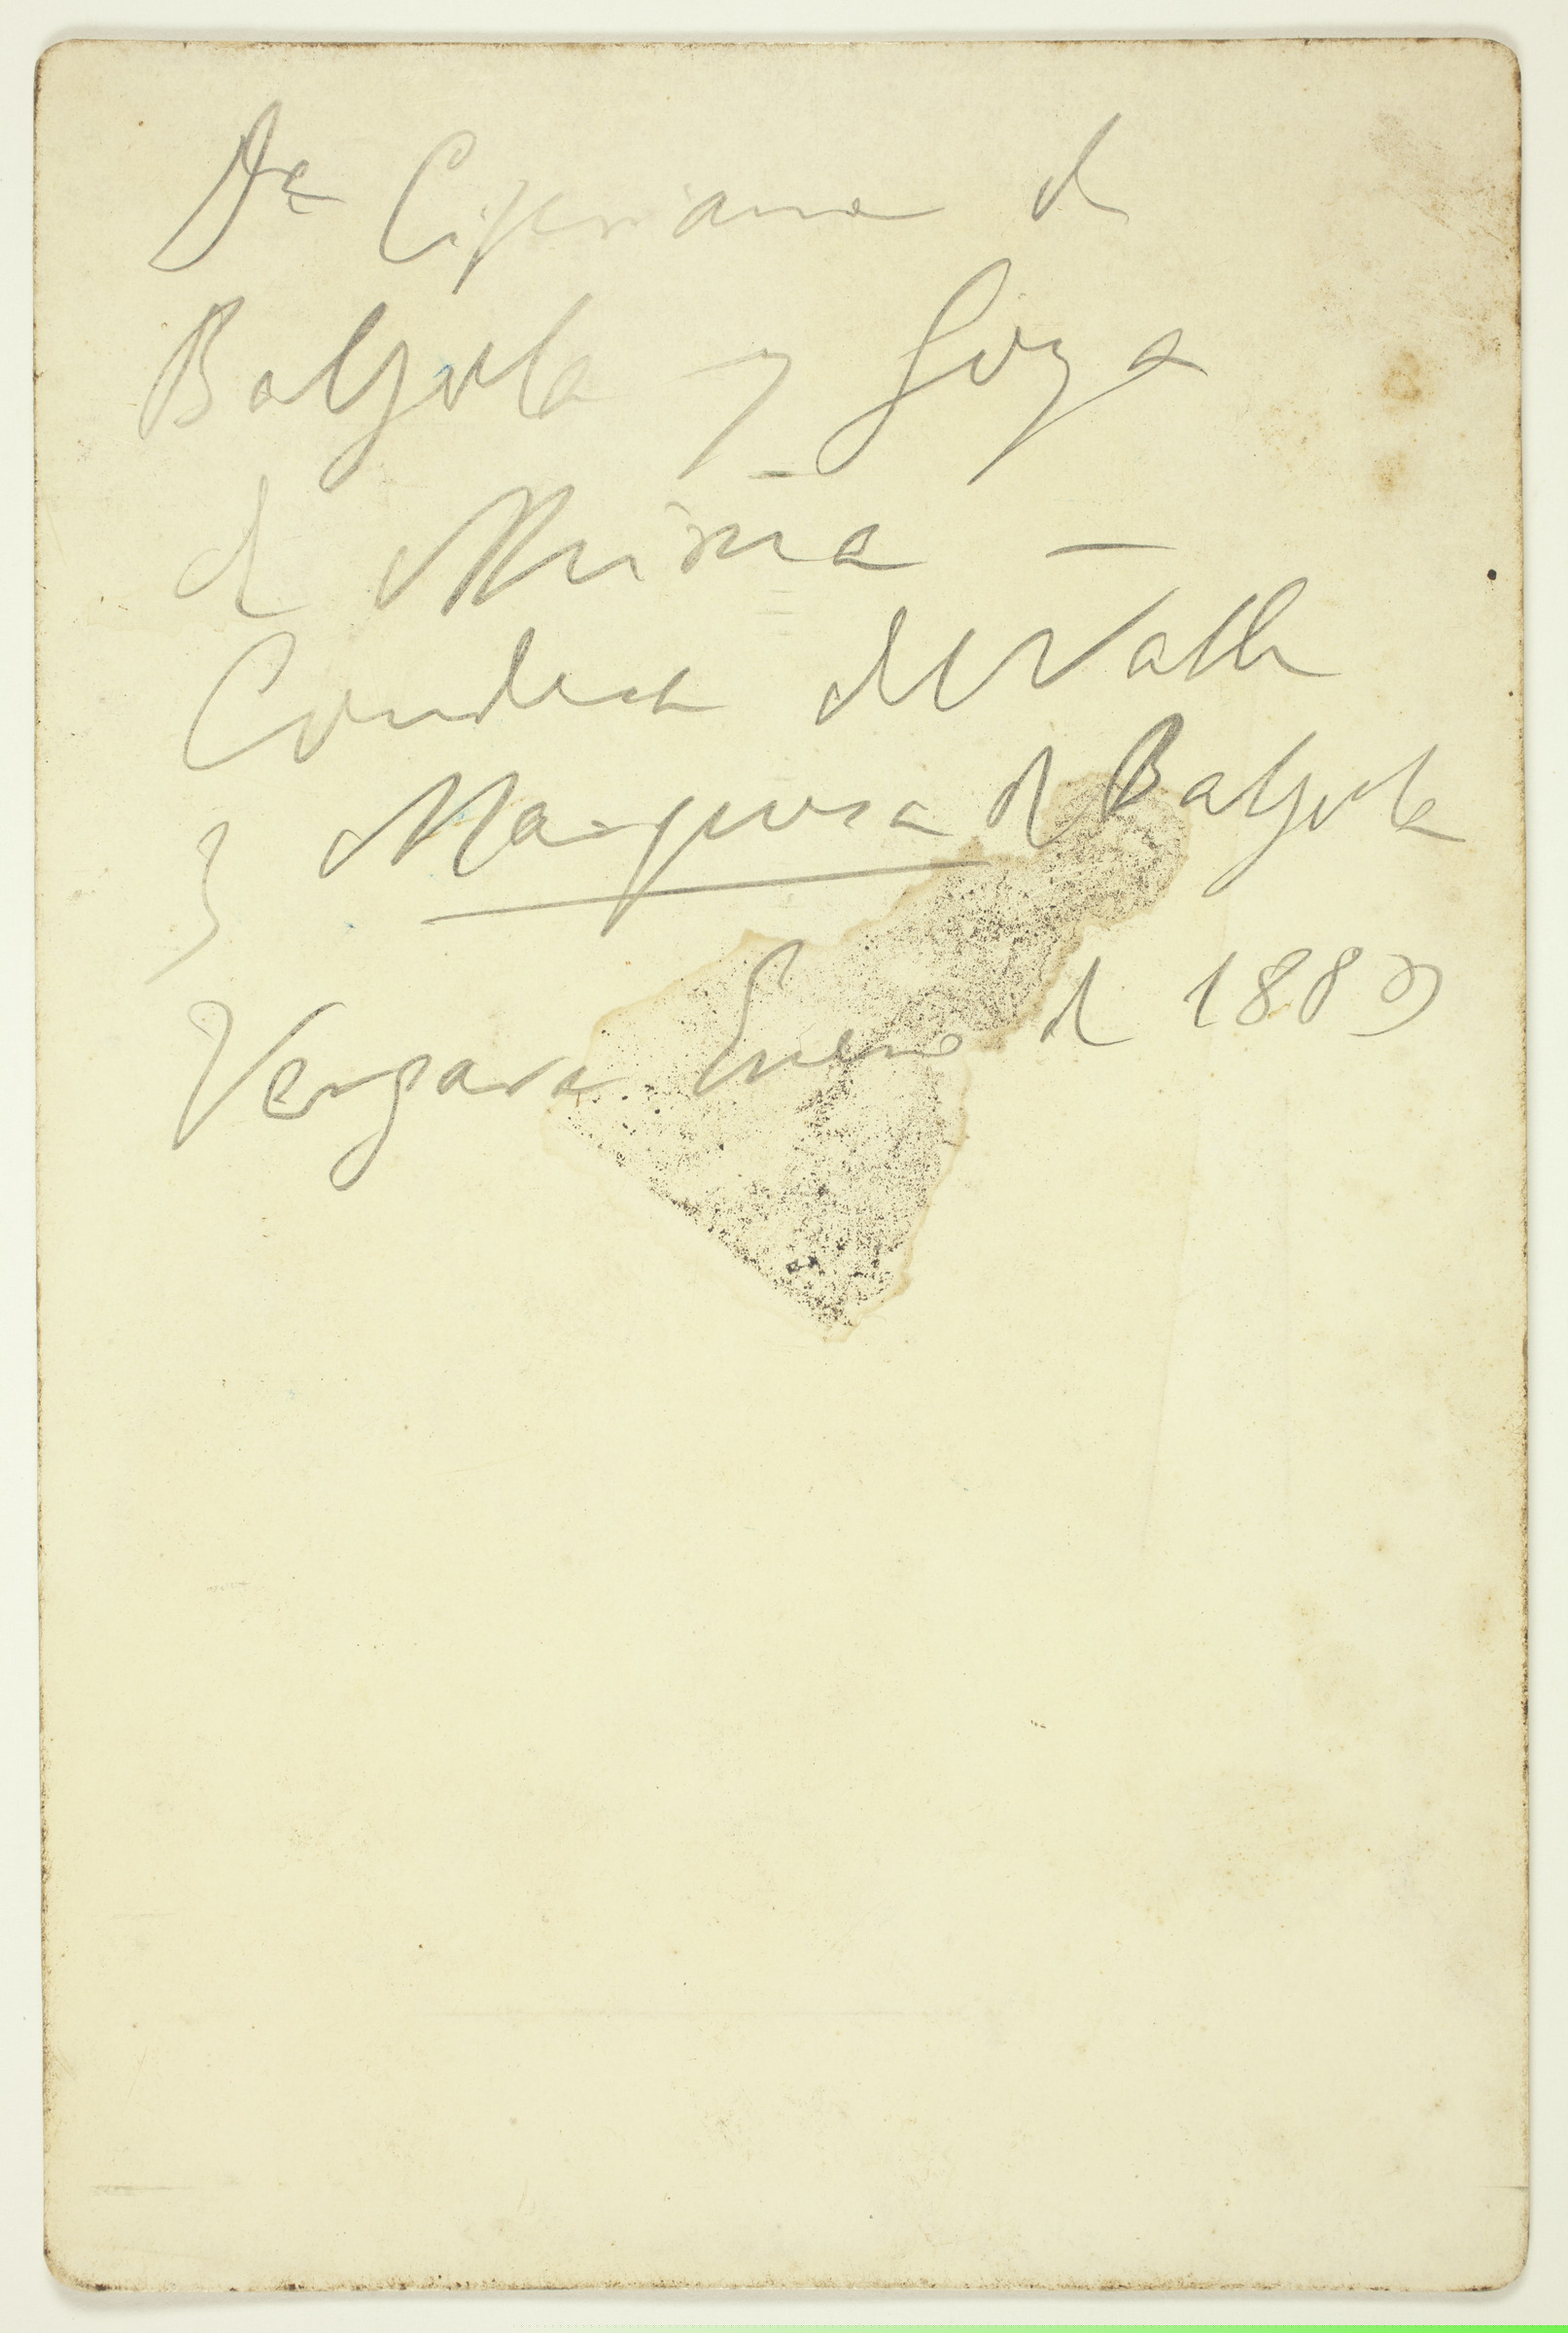 Da Cipriana de
Balzola y Goya
de Muñia -
Condesa del Valle
y Marquesa de Balzola
Vergara Enero de 1889